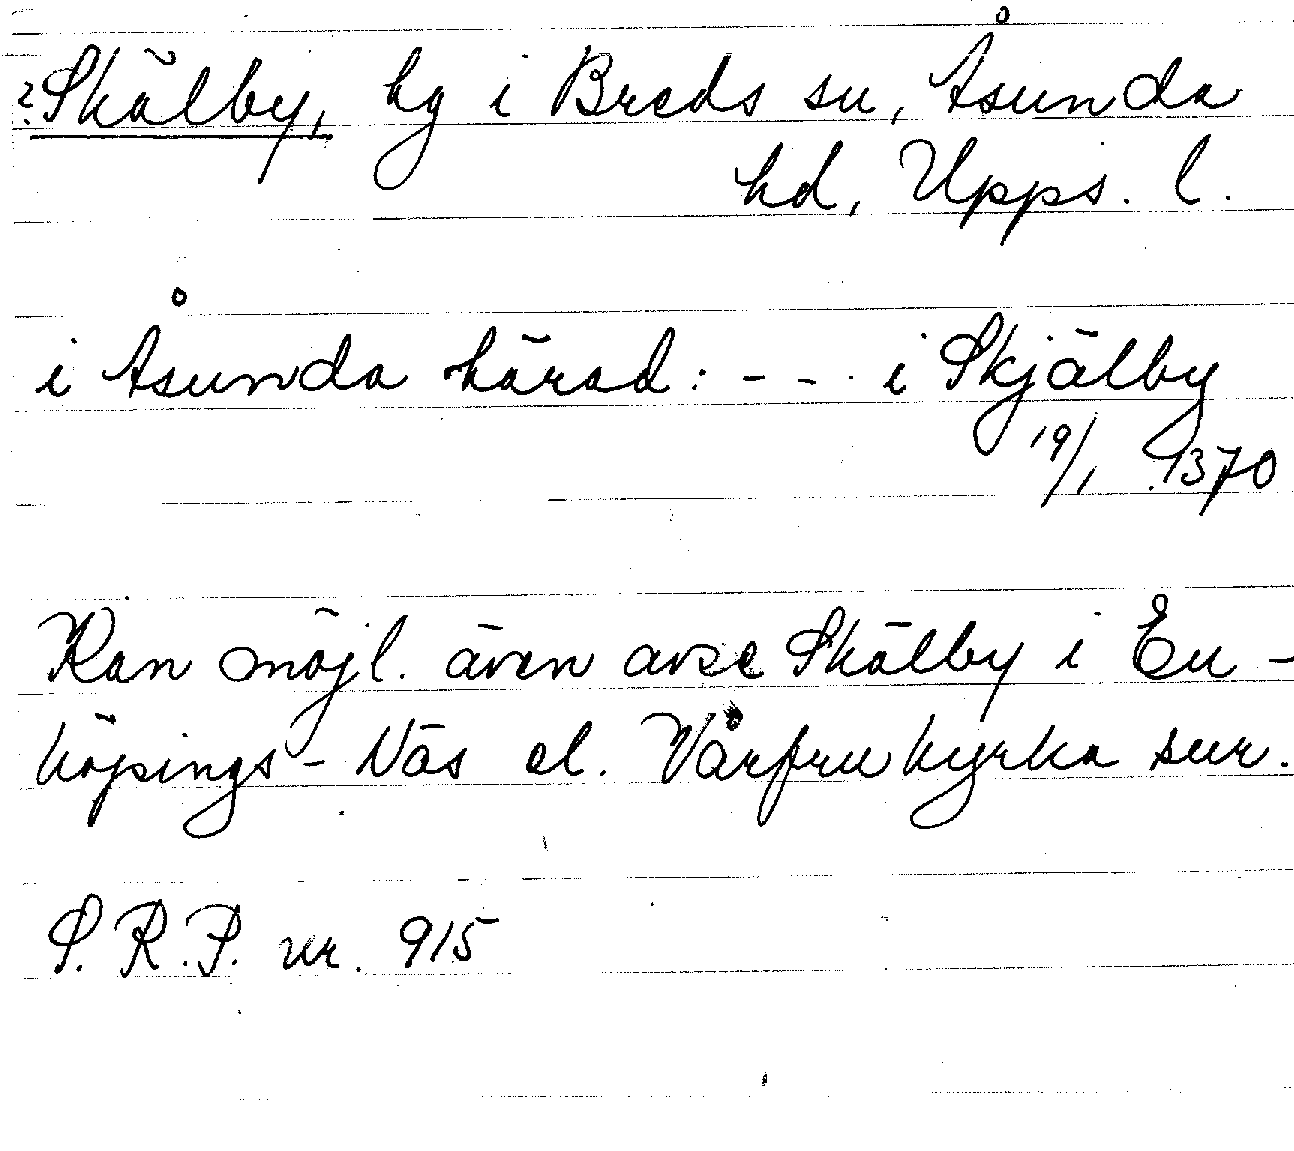 ? Skälby, hg i Breds sn, Åsunda
hd, Upps. l.
i Åsunda härad: - - - i Skjälby
19/1 1370
Kan möjl. även avse Skälby i En-
köpings-Näs el. Vårfrukyrka snr.
S. R. P. nr. 915